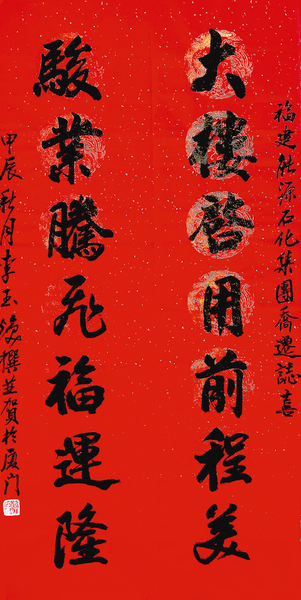 福建能源石化集團喬遷誌喜
大樓啓用前程美
駿業騰飛福運隆
甲辰秋月李玉煥撰並賀於厦门